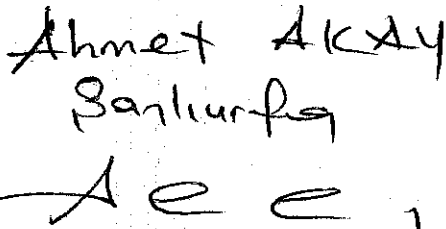 Ahmet AKAY
Şanlıurfa